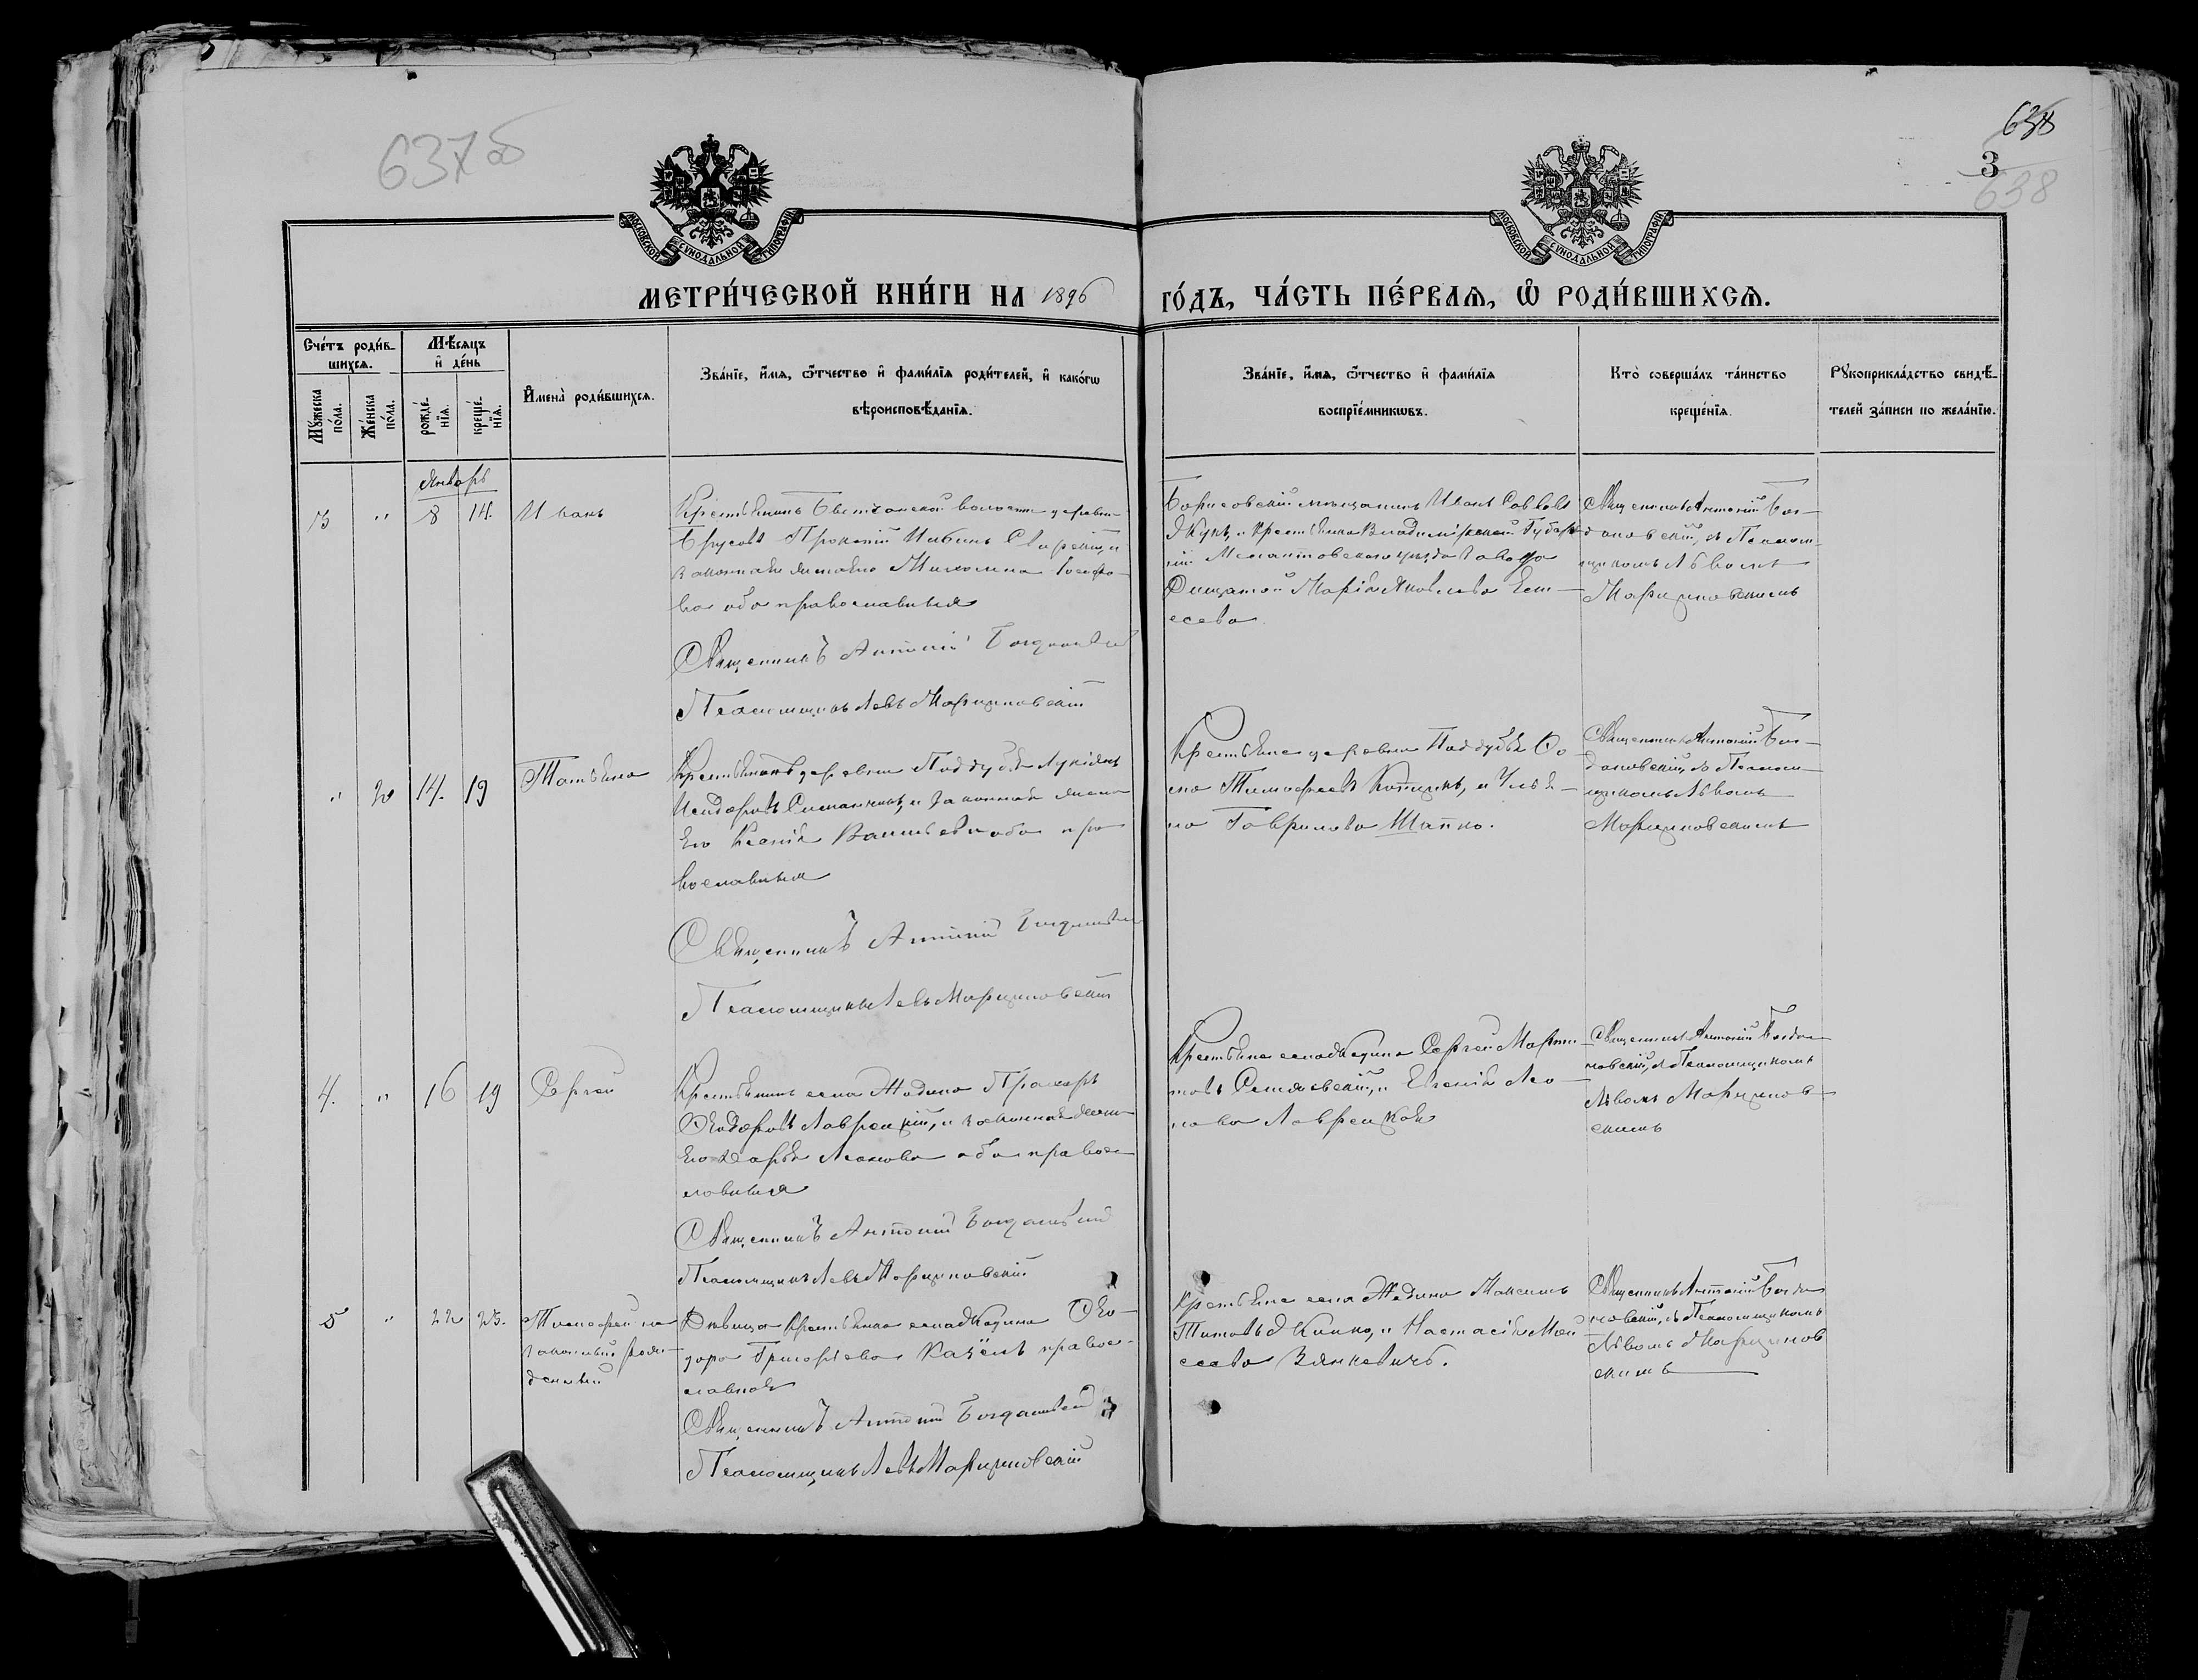 637 об
638
3
638
МОСКОВСКОЙ СѴНОДАЛЬНОЙ ТИПОГРАФІИ
МОСКОВСКОЙ СѴНОДАЛЬНОЙ ТИПОГРАФІИ
МЕТРИ́ЧЕСКОЙ КНИ́ГИ НА 1896 ГО́ДЪ, ЧА́СТЬ ПЕ́РВАѦ, Ѽ РОДИ́ВШИХСѦ.
Сче́тъ роди́в-
шихсѧ.
Мꙋ́жеска
по́ла.
Же́нска
по́ла.
Мѣ́сѧцъ
и҆ де́нь
рожде́-
нїѧ.
креще́-
нїѧ.
И҆мена̀ роди́вшихсѧ.
Зва́нїе, и҆́мѧ, ѻ҆́тчество и҆ фами́лїѧ роди́телей, и҆ како́гѡ
вѣроисповѣ́данїѧ.
Зва́нїе, и҆́мѧ, ѻ҆́тчество и҆ фами́лїѧ
воспрїе́мникѡвъ.
Кто̀ соверша́лъ та́инство
креще́нїѧ.
Рꙋкоприкла́дство свидѣ́-
телей за́писи по жела́нїю.
Январь
3 " 8 14. Иванъ
Крестьянинъ волости деревни
Прокопій
законная жена его Іосифо-
ва оба православныя
Священникъ Антоній Богдановскій
Псаломщикъ Левъ Марциновскій
Борисовскій мѣщанинъ Иванъ Саввовъ
и крестьянка Владимірской Губер-
ніи уѣзда
Марія Яковлева
Священникъ Антоній Бог-
дановскій, съ Псалом-
щикомъ Львомъ
Марциновскимъ
" 2 14. 19 Татьяна
Крестьянинъ деревни Поддубья Лукіянъ
Исидоровъ и законная жена
его Ксенія Васильева оба пра
вославныя
Священникъ Антоній Богдановскій
Псаломщикъ Левъ Марциновскій
Крестьяне деревни Поддубья
Тимофеевъ и Улья-
на Гаврилова Шапко.
Священникъ Антоній Бог-
дановскій, съ Псалом-
щикомъ Львомъ
Марциновскимъ
4. " 16 19 Сергей
Крестьянинъ села Жодина
Ѳеодоровъ Лаврецкій, и законная жена
его Дарья оба правос-
лавныя
Священникъ Антоній Богдановскій
Псаломщикъ Левъ Марциновскій
Крестьяне села Жодина Сергей Марты-
новъ и Евгенія Лео-
нова Лаврецкая
Священникъ Антоній Богда-
новскій, съ Псаломщикомъ
Львомъ Марцинов-
скимъ
5 " 22 25. Тимофей не
законный рож-
денный
Дѣвица крестьянка села Жодина Ѳео-
дора Григорьева правос-
лавная
Священникъ Антоній Богдановскій
Псаломщикъ Левъ Марциновскій
Крестьяне села Жодина Максимъ
Титовъ и Настасія Мои
сеева Зянкевичъ.
Священникъ Антоній Богда
новскій, съ Псаломщикомъ
Львомъ Марцинов
скимъ